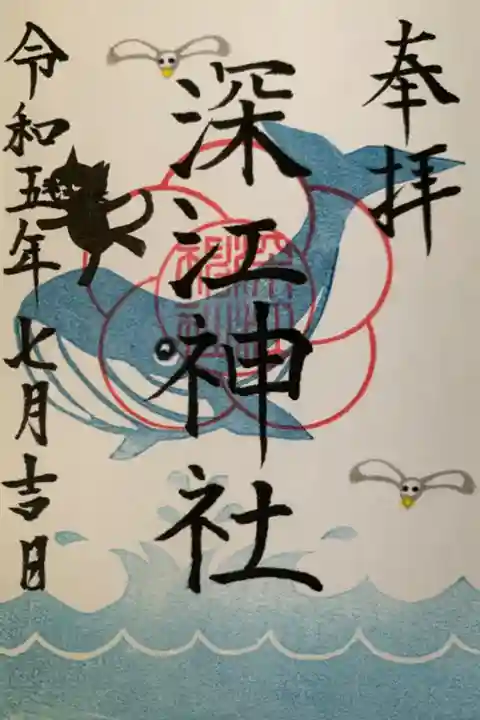 奉拝
深江神社
令和五年七月吉日